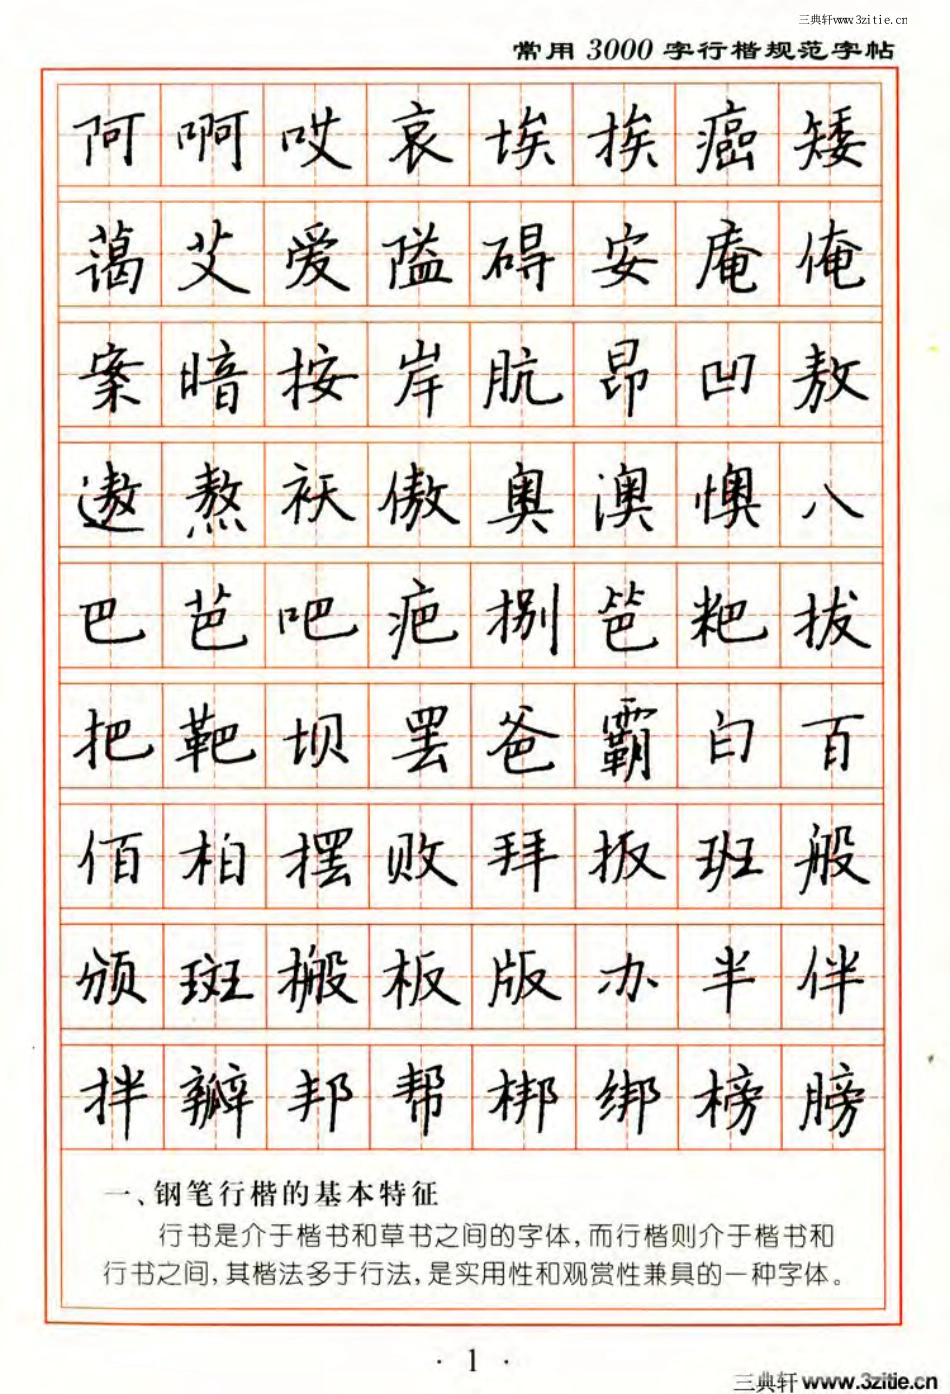 三典轩www.3zitie.cn
常用3000字行楷规范字帖
阿啊哎哀埃挨癌矮
蔼艾爱隘碍安庵俺
案暗按岸肮昂凹敖
遨熬袄傲奥澳懊八
巴芭吧疤捌笆粑拔
把靶坝罢爸霸白百
佰柏摆败拜扳班般
颁斑搬板版办半伴
拌瓣邦帮梆绑榜膀
一、钢笔行楷的基本特征
行书是介于楷书和草书之间的字体,而行楷则介于楷书和
行书之间,其楷法多于行法,是实用性和观赏性兼具的一种字体。
· 1 ·
三典轩 www.3zitie.cn